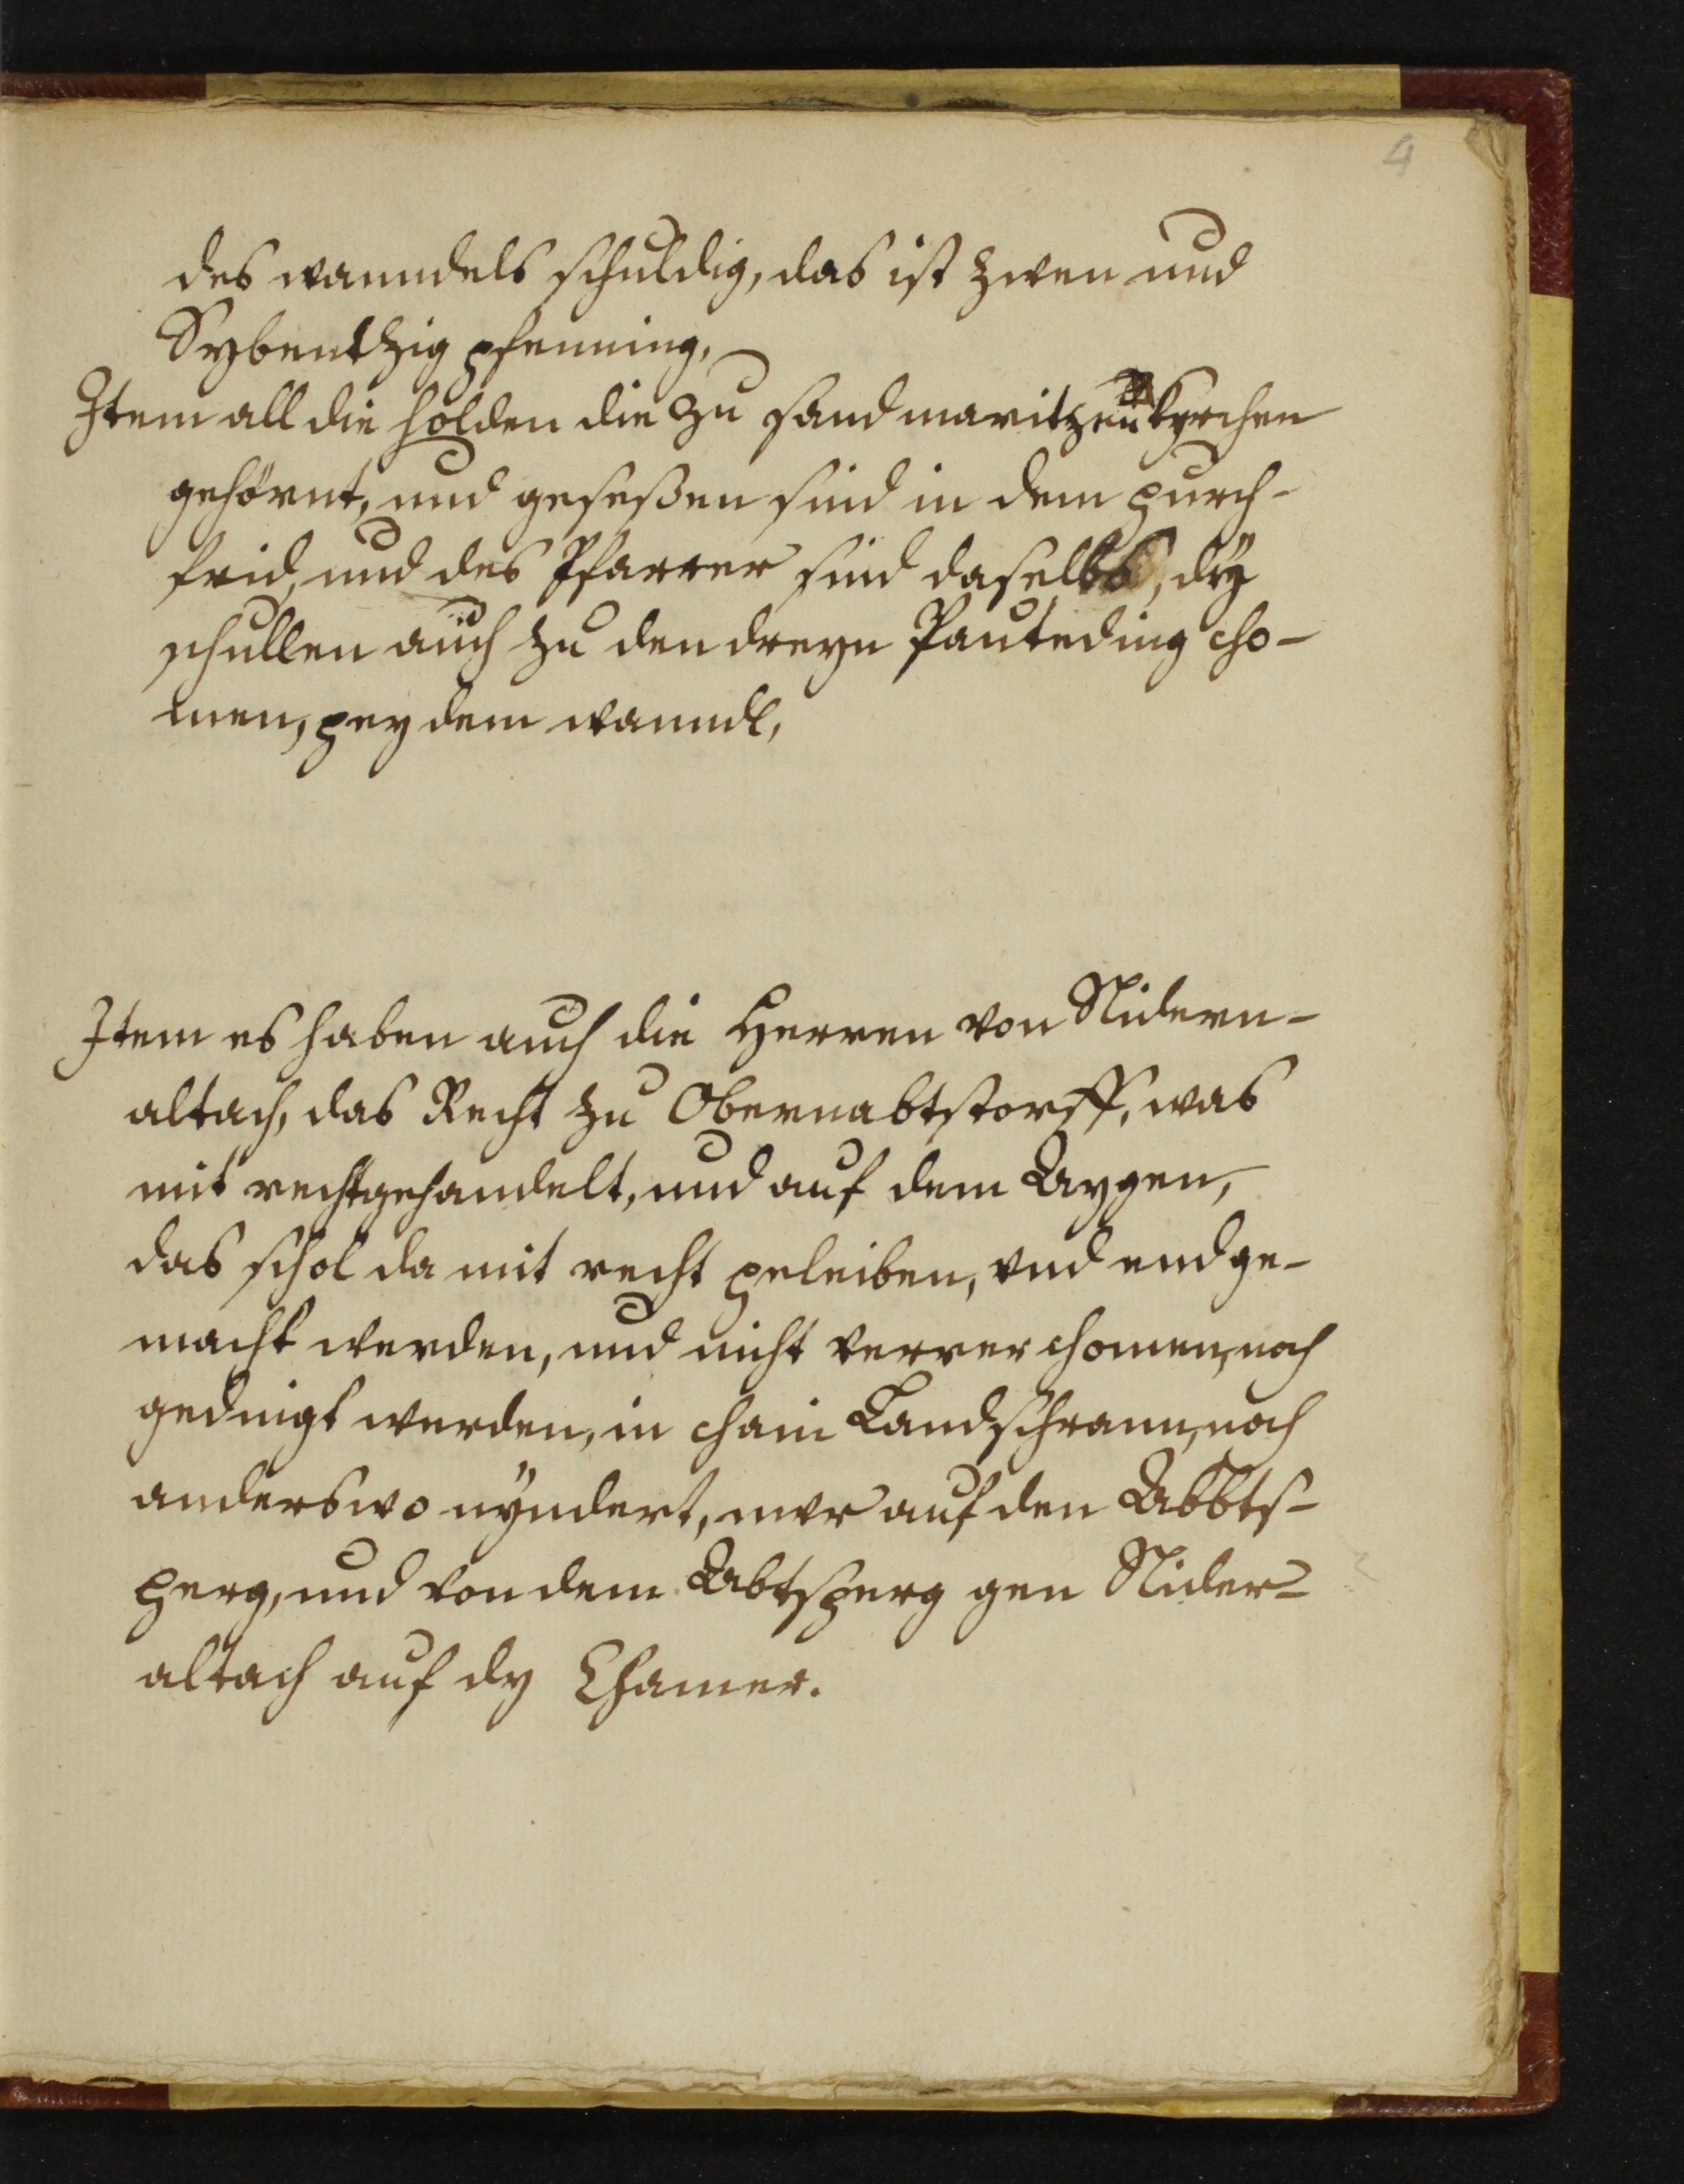 4
des wanndels schuldig, das ist zwen und
Sybentzig pfenning,
Item all die holden die zu sand maritzen kyrchen
gehörnt, und geseßen sind in dem purch-
frid, und des Pfarrer sind daselbs, dÿ
schullen auch zu den dreyn Panteding cho-
men, pey dem wanndl,
Item es haben auch die Herren von Nidern-
altach, das Recht zu Obernabtstorff, was
mit recht gehandelt, und auf dem Aygen,
das schol da mit recht peleiben, vnd endge-
macht werden, und nicht verrer chomen, noch
gedingt werden, in chain Landschrann, noch
anderswo nÿndert, mer auf den Abbts-
perg, und von dem Abtsperg gen Nider-
altach auf dy Chamer.